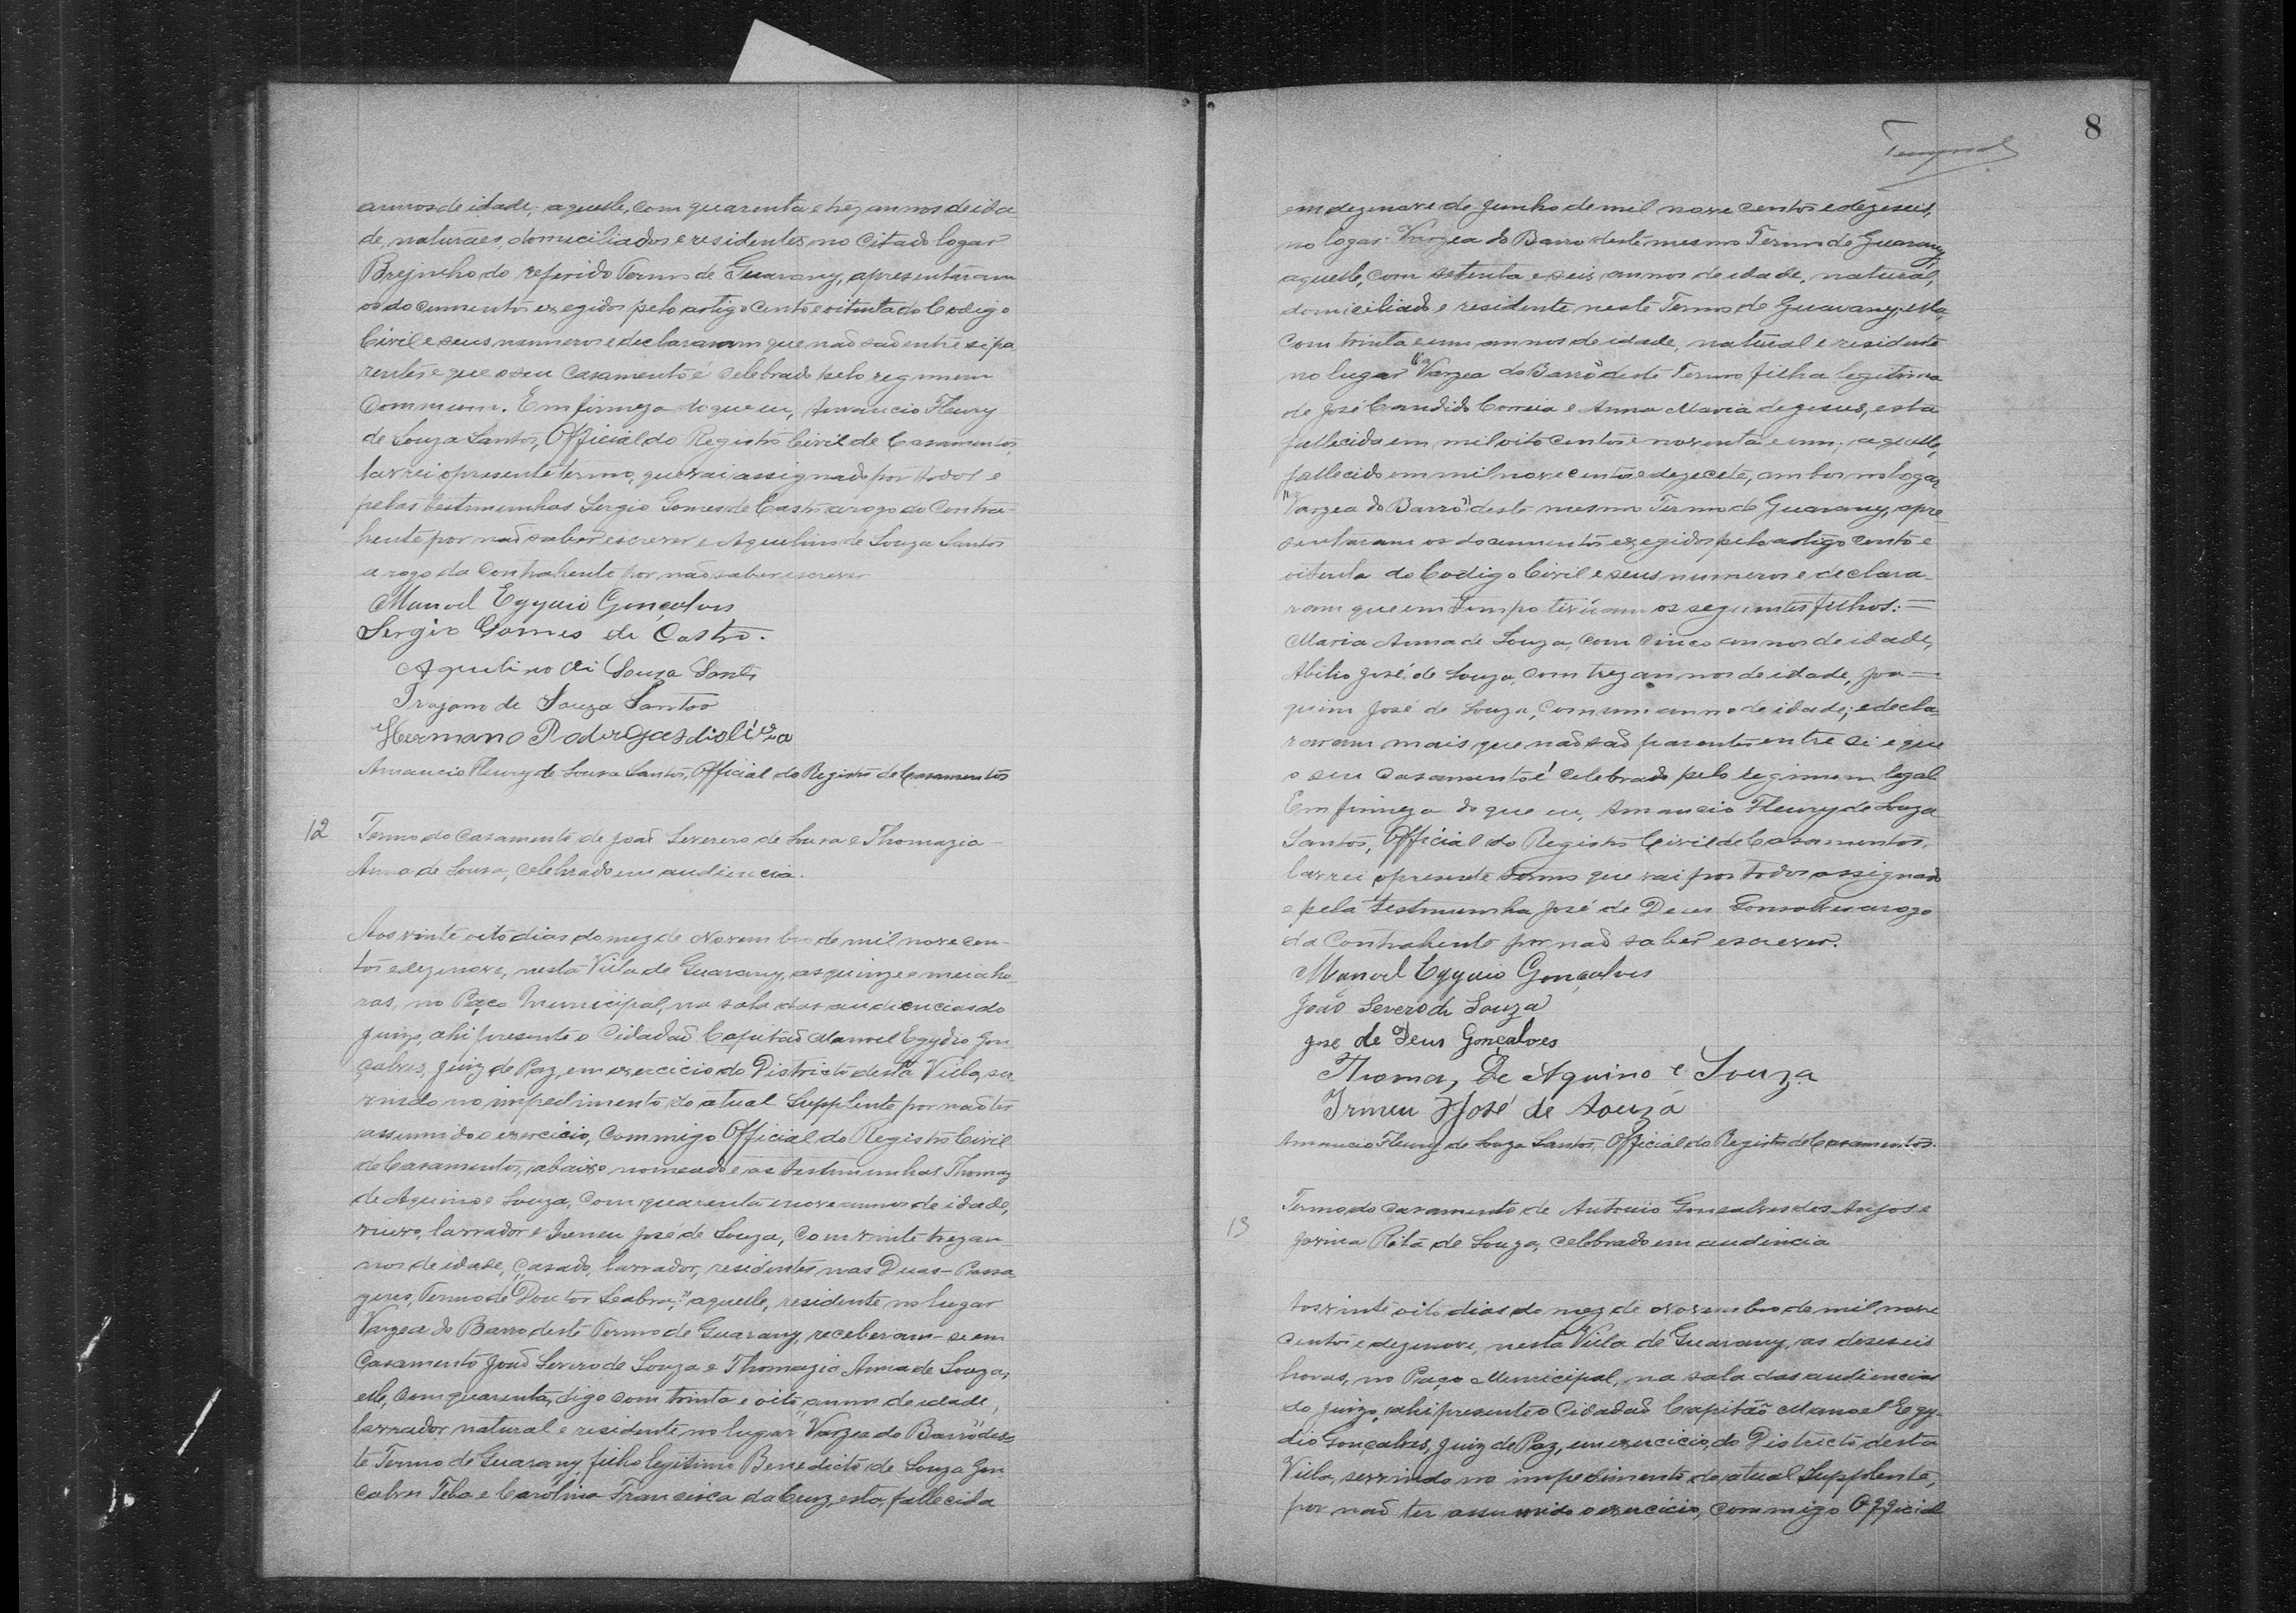 annos de idade; aquelle, com quarenta e trez annos de ida
de, naturaes, domiciliados e residentes no citado logar
Brejinho do referido Termo de Guarany, apresentaram
os documentos exegidos pelo artigo cento e oitenta do Codigo
Civil e seus numeros e declararam que não são entre si pa
rentes e que o seu casamento é celebrado pelo regimem
commum. Em firmeza do que eu, Amancio Fleury
de Souza Santos, Official do Registro Civil de Casamentos,
lavrei o presente termo, que vai assignado por todos e
pelas testimunhas Sergio Gomes de Castro a rogo do Contra-
hente por não saber escrever e Aquelino de Souza Santos
a rogo da Contrahente por não saber escrever
Manoel Egydio Gonçalves
Sergio Gomes de Castro.
Aquelino di Souza Santos
Trajano de Souza Santos
Hermano
Amancio Fleury de Souza Santos, Official do Registro de Casamentos
12 Termo do Casamento de João Severo de Sousa e Thomazia
Anna de Sousa, celebrado em audiencia.
Aos vinte oito dias do mez de Novembro de mil nove cen-
tos e dezenove, nesta Villa de Guarany, as quinze e meia ho-
ras, no Paço Municipal, na sala das audiencias do
Juizo, ahi presente o Cidadão Capitão Manoel Egydio Gon
çalves, Juiz de Paz, em exercicio do Districto desta Villa, ser
vindo no impedimento do atual Supplente por não ter
assumido o exercicio, commigo Official do Registro Civil
de Casamentos, abaixo nomeado e as testimunhas Thomaz
de Aquino e Souza, com quarenta e nove annos de idade,
viuvo, lavrador e Ireneu José de Souza, com vinte trez an
nos de idade, casado, lavrador, residentes nas Duas-Passa
gens, Termo de "Doutor Seabra," aquelle, residente no lugar
Varzea do Barro deste Termo de Guarany, receberam-se em
Casamento João Severo de Souza e Thomazia Anna de Souza;
elle, com quarenta, digo com trinta e oito annos de idade,
lavrador, natural e residente no lugar "Varzea do Barro" des-
te Termo de Guarany, filho legitimo Benedicto de Souza Gon
calves Tela e Carolina Francisca da Cruz, esta fallecida
8
em dezenove de Junho de mil nove centos e dezeseis,
no logar Varzea do Barro deste mesmo Termo de Guarany,
aquelle, com setenta e seis annos de idade, natural,
domiciliado e residente neste Termo de Guarany; ella,
com trinta e um annos de idade, natural e residente
no lugar "Varzea do Barro" deste Termo, filha legitima
de José Candido Correia e Anna Maria de Jesus, esta
fallecida em mil oito centos e noventa e um; aquelle,
fallecido em mil nove centos e dezecete, ambos no logar
"Varzea do Barro" deste mesmo Termo de Guarany, apre-
sentaram os documentos exegidos pelo artigo cento e
oitenta do Codigo Civil e seus numeros e declara-
ram que em tempo tiveram os seguintes filhos: =
Maria Anna de Souza, com cinco annos de idade,
Abilio José de Souza, com trez annos de idade, Joa =
quim José de Souza, com um anno de idade; e decla-
raram mais que não são parentes entre si e que
o seu casamento é celebrado pelo regimem legal.
Em firmeza do que eu, Amancio Fleury de Souza
Santos, Official do Registro Civil de Casamentos,
lavrei o presente termo que vai por todos assignado
e pela testimunha José de Deus Gonsalves a rogo
da Contrahente por não saber escrever.
Manoel Egydio Gonçalves
João Severo de Souza
José de Deus Gonçalves
Thomaz De Aquino e Souza
Irineu José de Souza
Amancio Fleury de Souza Santos, Official do Registro de Casamentos.
13 Termo do casamento de Antonio Gonsalves dos Anjos e
Jovina Rita de Souza, celebrado em audiencia
Aos vinte oito dias do mez de Novembro de mil nove
centos e dezenove, nesta Villa de Guarany, as deseseis
horas, no Paço Municipal, na sala das audiencias
do Juizo, ahi presente o Cidadão Capitão Manoel Egy-
dio Gonçalves, Juiz de Paz, em exercicio, do Districto desta
Villa, servindo no impedimento do atual Supplente,
por não ter assumido o exercicio, commigo Official